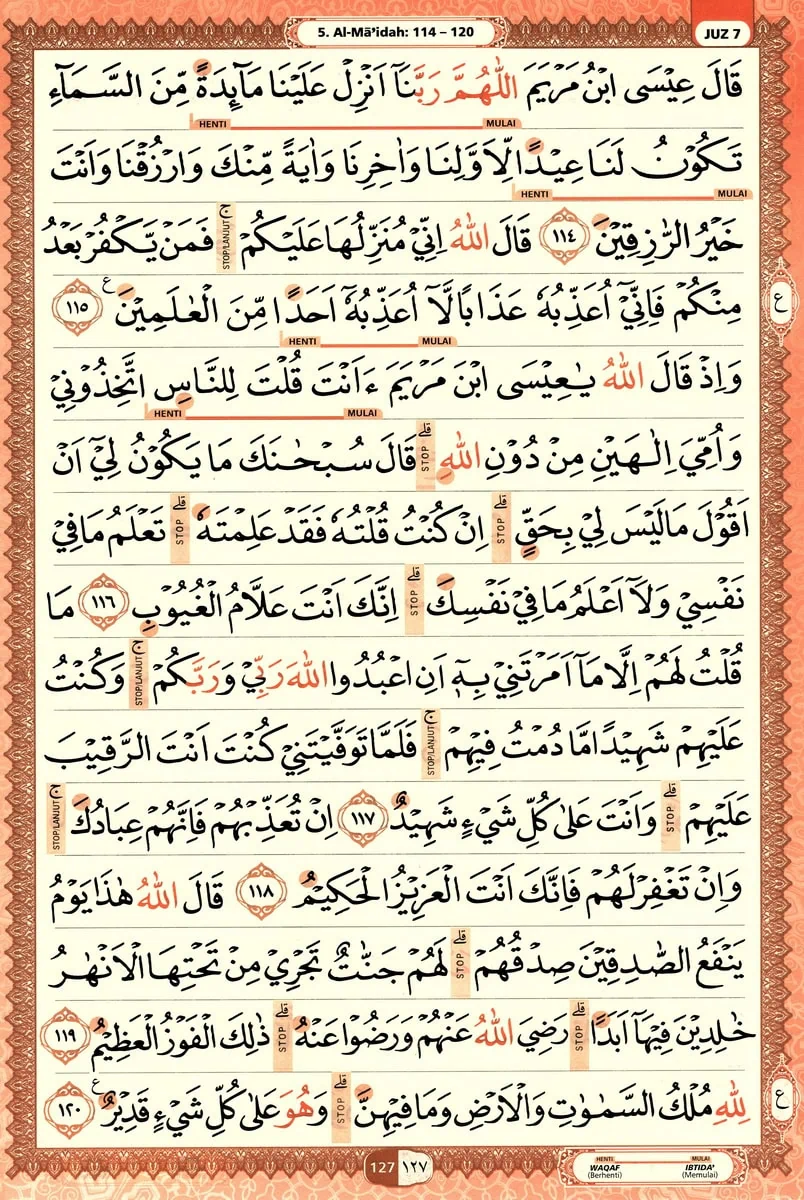 5. Al-Mā'idah: 114 – 120
JUZ 7
قَالَ عِيْسَى ابْنُ مَرْيَمَ اللّٰهُمَّ رَبَّنَآ اَنْزِلْ عَلَيْنَا مَاۤىِٕدَةً مِّنَ السَّمَاۤءِ
HENTI MULAI
تَكُوْنُ لَنَا عِيْدًا لِّاَوَّلِنَا وَاٰخِرِنَا وَاٰيَةً مِّنْكَ وَارْزُقْنَا وَاَنْتَ
HENTI MULAI
خَيْرُ الرّٰزِقِيْنَ ١١٤ قَالَ اللّٰهُ اِنِّيْ مُنَزِّلُهَا عَلَيْكُمْ ۚ STOP/LANJUT فَمَنْ يَّكْفُرْ بَعْدُ
مِنْكُمْ فَاِنِّيْٓ اُعَذِّبُهٗ عَذَابًا لَّآ اُعَذِّبُهٗٓ اَحَدًا مِّنَ الْعٰلَمِيْنَ ࣖ ١١٥
ع
HENTI MULAI
وَاِذْ قَالَ اللّٰهُ يٰعِيْسَى ابْنَ مَرْيَمَ ءَاَنْتَ قُلْتَ لِلنَّاسِ اتَّخِذُوْنِيْ
HENTI MULAI
وَاُمِّيَ اِلٰهَيْنِ مِنْ دُوْنِ اللّٰهِ ۗ STOP قَالَ سُبْحٰنَكَ مَا يَكُوْنُ لِيْٓ اَنْ
اَقُوْلَ مَا لَيْسَ لِيْ بِحَقٍّ ۗ STOP اِنْ كُنْتُ قُلْتُهٗ فَقَدْ عَلِمْتَهٗ ۗ STOP تَعْلَمُ مَا فِيْ
نَفْسِيْ وَلَآ اَعْلَمُ مَا فِيْ نَفْسِكَ ۗ STOP اِنَّكَ اَنْتَ عَلَّامُ الْغُيُوْبِ ١١٦ مَا
قُلْتُ لَهُمْ اِلَّا مَآ اَمَرْتَنِيْ بِهٖٓ اَنِ اعْبُدُوا اللّٰهَ رَبِّيْ وَرَبَّكُمْ ۚ STOP/LANJUT وَكُنْتُ
عَلَيْهِمْ شَهِيْدًا مَّا دُمْتُ فِيْهِمْ ۚ STOP/LANJUT فَلَمَّا تَوَفَّيْتَنِيْ كُنْتَ اَنْتَ الرَّقِيْبَ
عَلَيْهِمْ ۗ STOP وَاَنْتَ عَلٰى كُلِّ شَيْءٍ شَهِيْدٌ ١١٧ اِنْ تُعَذِّبْهُمْ فَاِنَّهُمْ عِبَادُكَ ۚ STOP/LANJUT
وَاِنْ تَغْفِرْ لَهُمْ فَاِنَّكَ اَنْتَ الْعَزِيْزُ الْحَكِيْمُ ١١٨ قَالَ اللّٰهُ هٰذَا يَوْمُ
يَنْفَعُ الصّٰدِقِيْنَ صِدْقُهُمْ ۗ STOP لَهُمْ جَنّٰتٌ تَجْرِيْ مِنْ تَحْتِهَا الْاَنْهٰرُ
خٰلِدِيْنَ فِيْهَآ اَبَدًا ۗ STOP رَضِيَ اللّٰهُ عَنْهُمْ وَرَضُوْا عَنْهُ ۗ STOP ذٰلِكَ الْفَوْزُ الْعَظِيْمُ ١١٩
لِلّٰهِ مُلْكُ السَّمٰوٰتِ وَالْاَرْضِ وَمَا فِيْهِنَّ ۗ STOP وَهُوَ عَلٰى كُلِّ شَيْءٍ قَدِيْرٌ ࣖ ١٢٠
ع
127 ١٢٧
HENTI MULAI
WAQAF IBTIDA'
(Berhenti) (Memulai)